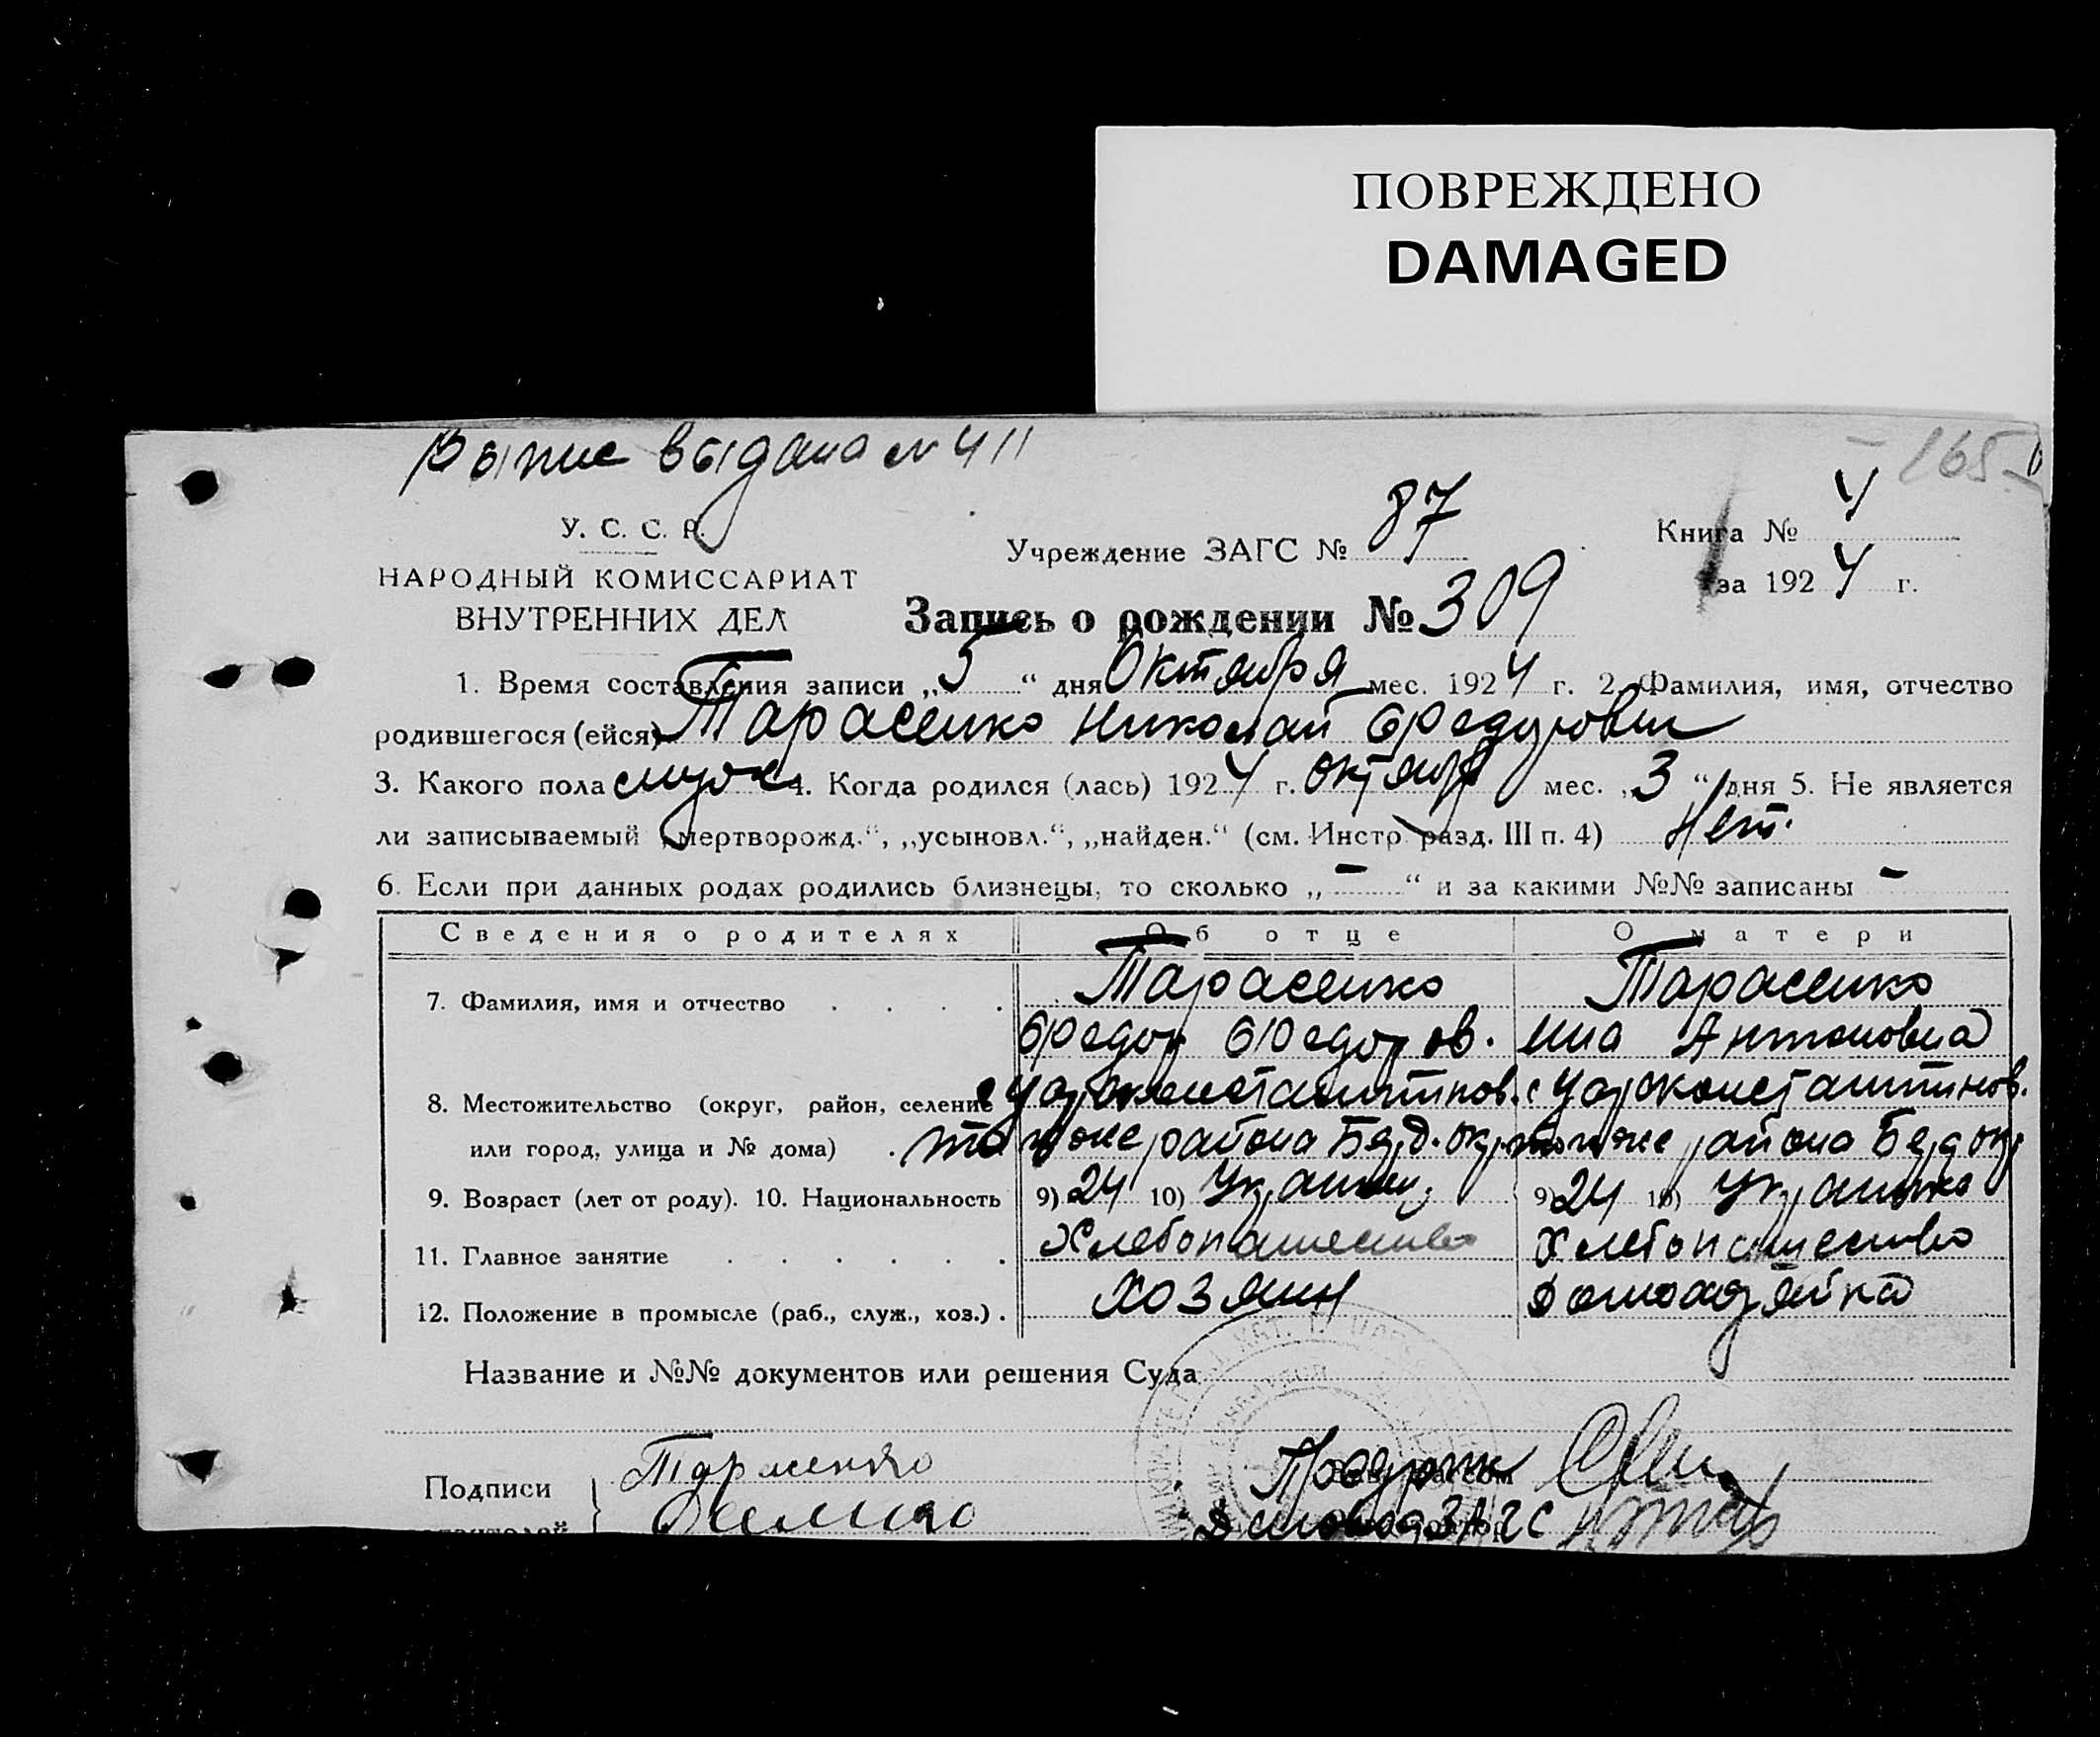 ПОВРЕЖДЕНО
DAMAGED
Выпис выдана № 411
165
У. С. С. Р.
НАРОДНЫЙ КОМИССАРИАТ
ВНУТРЕННИХ ДЕЛ
Учреждение ЗАГС № 87
Книга № 4
за 1924 г.
Запись о рождении № 309
1. Время составления записи „5“ дня Октября мес. 1924 г. 2. Фамилия, имя, отчество
родившегося (ейся) Тарасенко Николай Федорович
3. Какого пола мужс 4. Когда родился (лась) 1924 г. октяб мес. „3“ дня 5. Не является
ли записываемый „мертворожд.“, „усыновл.“, „найден.“ (см. Инстр. разд. III п. 4) Нет.
6. Если при данных родах родились близнецы, то сколько „-“ и за какими №№ записаны -
Сведения о родителях Об отце О матери
7. Фамилия, имя и отчество . . . . Тарасенко Тарасенко
Федор Федоров. Антоновна
8. Местожительство (округ, район, селение с Царконстантинов. с Царконстантинов.
или город, улица и № дома) . того же района Берд. окр того же района Берд окр
9. Возраст (лет от роду). 10. Национальность 9) 24 10) Украин. 9) 24 10) Украинка
11. Главное занятие . . . . . . Хлебопашество Хлебопашество
12. Положение в промысле (раб., служ., хоз.) . хозяин Домохозяйка
Название и №№ документов или решения Суда
Подписи Тарасенко
Деловод ЗАГС